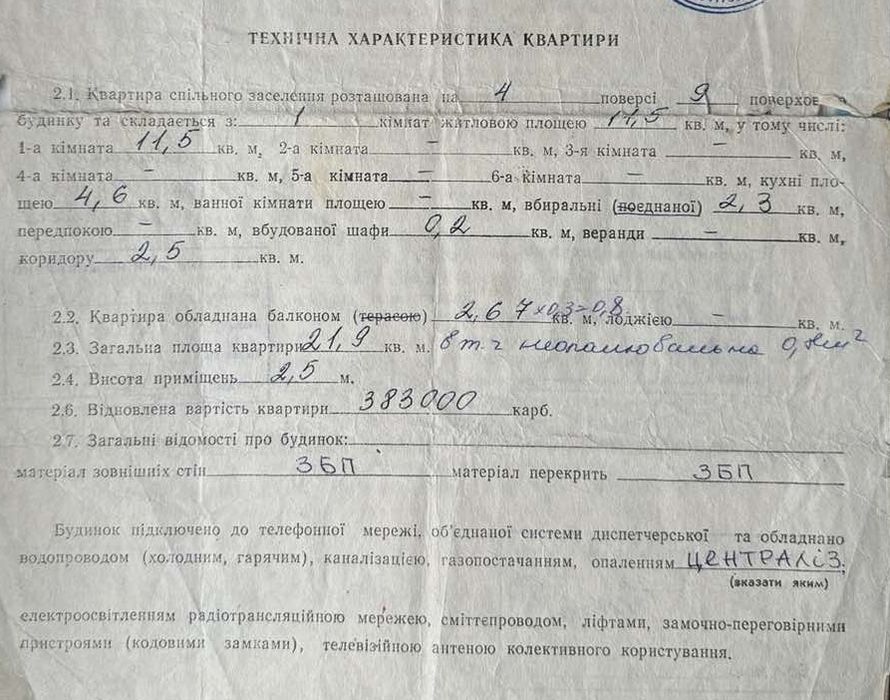 ТЕХНІЧНА ХАРАКТЕРИСТИКА КВАРТИРИ
2.1. Квартира спільного заселення розташована на 4 поверсі 9 поверхов
будинку та складається з: 1 кімнат житловою площею 11,5 кв. м, у тому числі:
1-а кімната 11,5 кв. м, 2-а кімната — кв. м, 3-я кімната — кв. м,
4-а кімната — кв. м, 5-а кімната — 6-а кімната — кв. м, кухні пло-
щею 4,6 кв. м, ванної кімнати площею — кв. м, вбиральні (поєднаної) 2,3 кв. м,
передпокою — кв. м, вбудованої шафи 0,2 кв. м, веранди — кв. м,
коридору 2,5 кв. м.
2.2. Квартира обладнана балконом (терасою) 2,67 х0,3=0,8 кв. м, лоджією — кв. м.
2.3. Загальна площа квартири 21,9 кв. м. в т.ч неопалювальна 0,8м²
2.4. Висота приміщень 2,5 м.
2.6. Відновлена вартість квартири 383000 карб.
2.7. Загальні відомості про будинок:
матеріал зовнішніх стін ЗБП матеріал перекрить ЗБП
Будинок підключено до телефонної мережі, об'єднаної системи диспетчерської та обладнано
водопроводом (холодним, гарячим), каналізацією, газопостачанням, опаленням ЦЕНТРАЛІЗ.
(вказати яким)
електроосвітленням радіотрансляційною мережею, сміттєпроводом, ліфтами, замочно-переговірними
пристроями (кодовими замками), телевізійною антеною колективного користування.